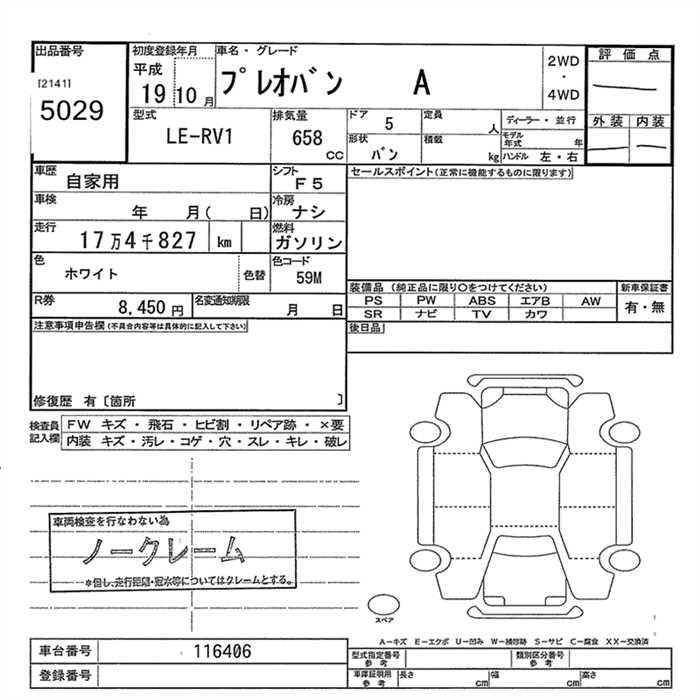 出品番号
[2141]
5029
初度登録年月
平成
19 10 月
車名・グレード
プレオバン A
2WD
・
4WD
評価点
型式
LE-RV1
排気量
658
cc
ドア 5
定員
人
形状
バン
積載
kg
ディーラー・並行
モデル年式 年
ハンドル 左・右
外装 内装
車歴 自家用
シフト
F5
車検 年 月( 日)
冷房
ナシ
走行 17万4千827 km
燃料
ガソリン
色 ホワイト
色替
色コード
59M
R券 8,450 円
名変通知期限 月 日
セールスポイント(正常に機能するものに限ります)
装備品 (純正品に限り○をつけてください)
PS PW ABS エアB AW
SR ナビ TV カワ
新車保証書
有・無
後日品
注意事項申告欄(不具合内容等は具体的に記入して下さい)
修復歴 有〔箇所 〕
検査員記入欄
FW キズ・飛石・ヒビ割・リペア跡・×要
内装 キズ・汚レ・コゲ・穴・スレ・キレ・破レ
車両検査を行なわない為
ノークレーム
*但し、走行距離・冠水等についてはクレームとする。
スペア
A-キズ E-エクボ U-凹み W-補修跡 S-サビ C-腐食 XX-交換済
車台番号 116406
登録番号
型式指定番号
参考
類別区分番号
参考
車庫証明用
参考
長さ cm
幅 cm
高さ cm